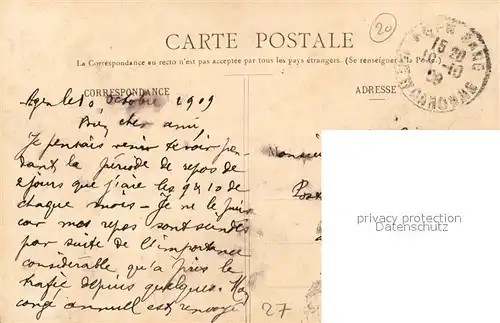 20
CARTE POSTALE
La Correspondance au recto n'est pas acceptée par tous les pays étrangers. (Se renseigner à la Poste)
CORRESPONDANCE
ADRESSE
15 20
10-10
09
Agen le 10 octobre 1909
Bien cher ami,
Je pensais venir te voir pen-
dant la période de repos de
2 jours que j'ai les 9 & 10 de
chaque mois - Je ne le puis
car mes repos sont
par suite de l'importance
considérable qu'a pris le
trafic depuis quelques. Mon
congé annuel est renvoyé
Monsieur
Post
privacy protection
Datenschutz
27